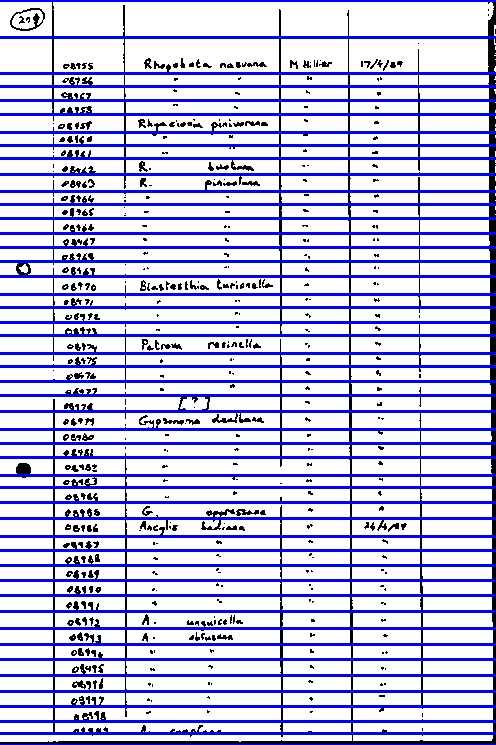 08955 Rhopobota naevana M Hillier 17/4/89
08956 " " " "
08957 " " " "
08958 " " " "
08959 Rhyacionia pinivorana " "
08960 " " " "
08961 " " " "
08962 R. buoliana " "
08963 R. pinicolana " "
08964 " " " "
08965 " " " "
08966 " " " "
08967 " " " "
08968 " " " "
08969 " " " "
08970 Blastesthia turionella " "
08971 " " " "
08972 " " " "
08973 " " " "
08974 Petrova resinella " "
08975 " " " "
08976 " " " "
08977 " " " "
08978 [?] " "
08979 Gypsonoma dealbana " "
08980 " " " "
08981 " " " "
08982 " " " "
08983 " " " "
08984 " " " "
08985 G. oppressana " "
08986 Ancylis badiana " 26/4/89
08987 " " " "
08988 " " " "
08989 " " " "
08990 " " " "
08991 " " " "
08992 A. unguicella " "
08993 A. obtusana " "
08994 " " " "
08995 " " " "
08996 " " " "
08997 " " " "
08998 " " " "
08999 A. comptana " "